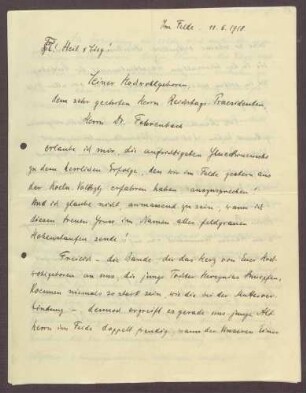 Im Felde, 11.6.1918.
Heil & Sieg!
Seiner Hochwohlgeboren,
dem sehr geehrten Herrn Reichstags-Praesidenten
Herrn Dr. Fehrenbach
erlaube ich mir, die aufrichtigsten Glueckwuensche
zu dem herrlichen Erfolge, den wir im Felde gestern aus
der Koeln. Volksztg erfahren haben auszusprechen!
Und ich glaube nicht, anmassend zu sein, wenn ich
diesen treuen Gruss im Namen aller feldgrauen
Hohenstaufen sende!
Freilich - die Bande, die das Herz von Euer Hoch-
wohlgeboren an uns, die junge Tochter Hercynias knuepfen,
koennen niemals so stark sein wie die in der Mutterver-
bindung - dennoch ergreift es gerade uns junge Alt
herrn im Felde doppelt freudig, wenn der Unseren Einer